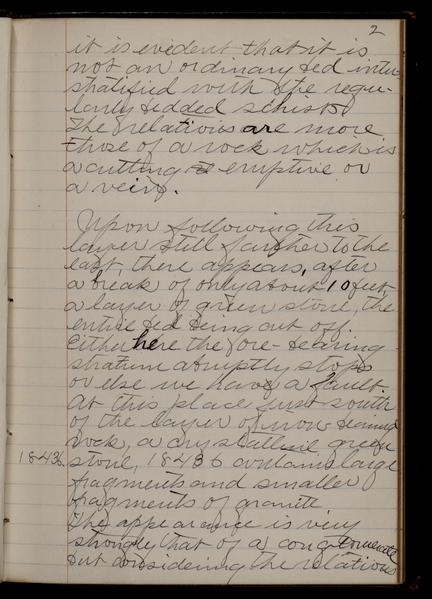 2
it is evident that it is
not an ordinary bed inter-
stratified with the regu-
larly bedded schists.
The relations are more
those of a rock which is
a cutting eruptive or
a vein.
Upon following this
layer still farther to the
east, there appears, after
a break of only about 10 feet
a layer of green stone, the
entire bed being cut off.
Either here the ore-bearing
stratum abruptly stops
or else we have a fault.
At this place just south
of the layer of iron-bearing
rock, a crystalline green
18436. stone, 18436 contains large
fragments and smaller
fragments of granite
The appearance is very
strongly that of a conglomerate
but considering the relations